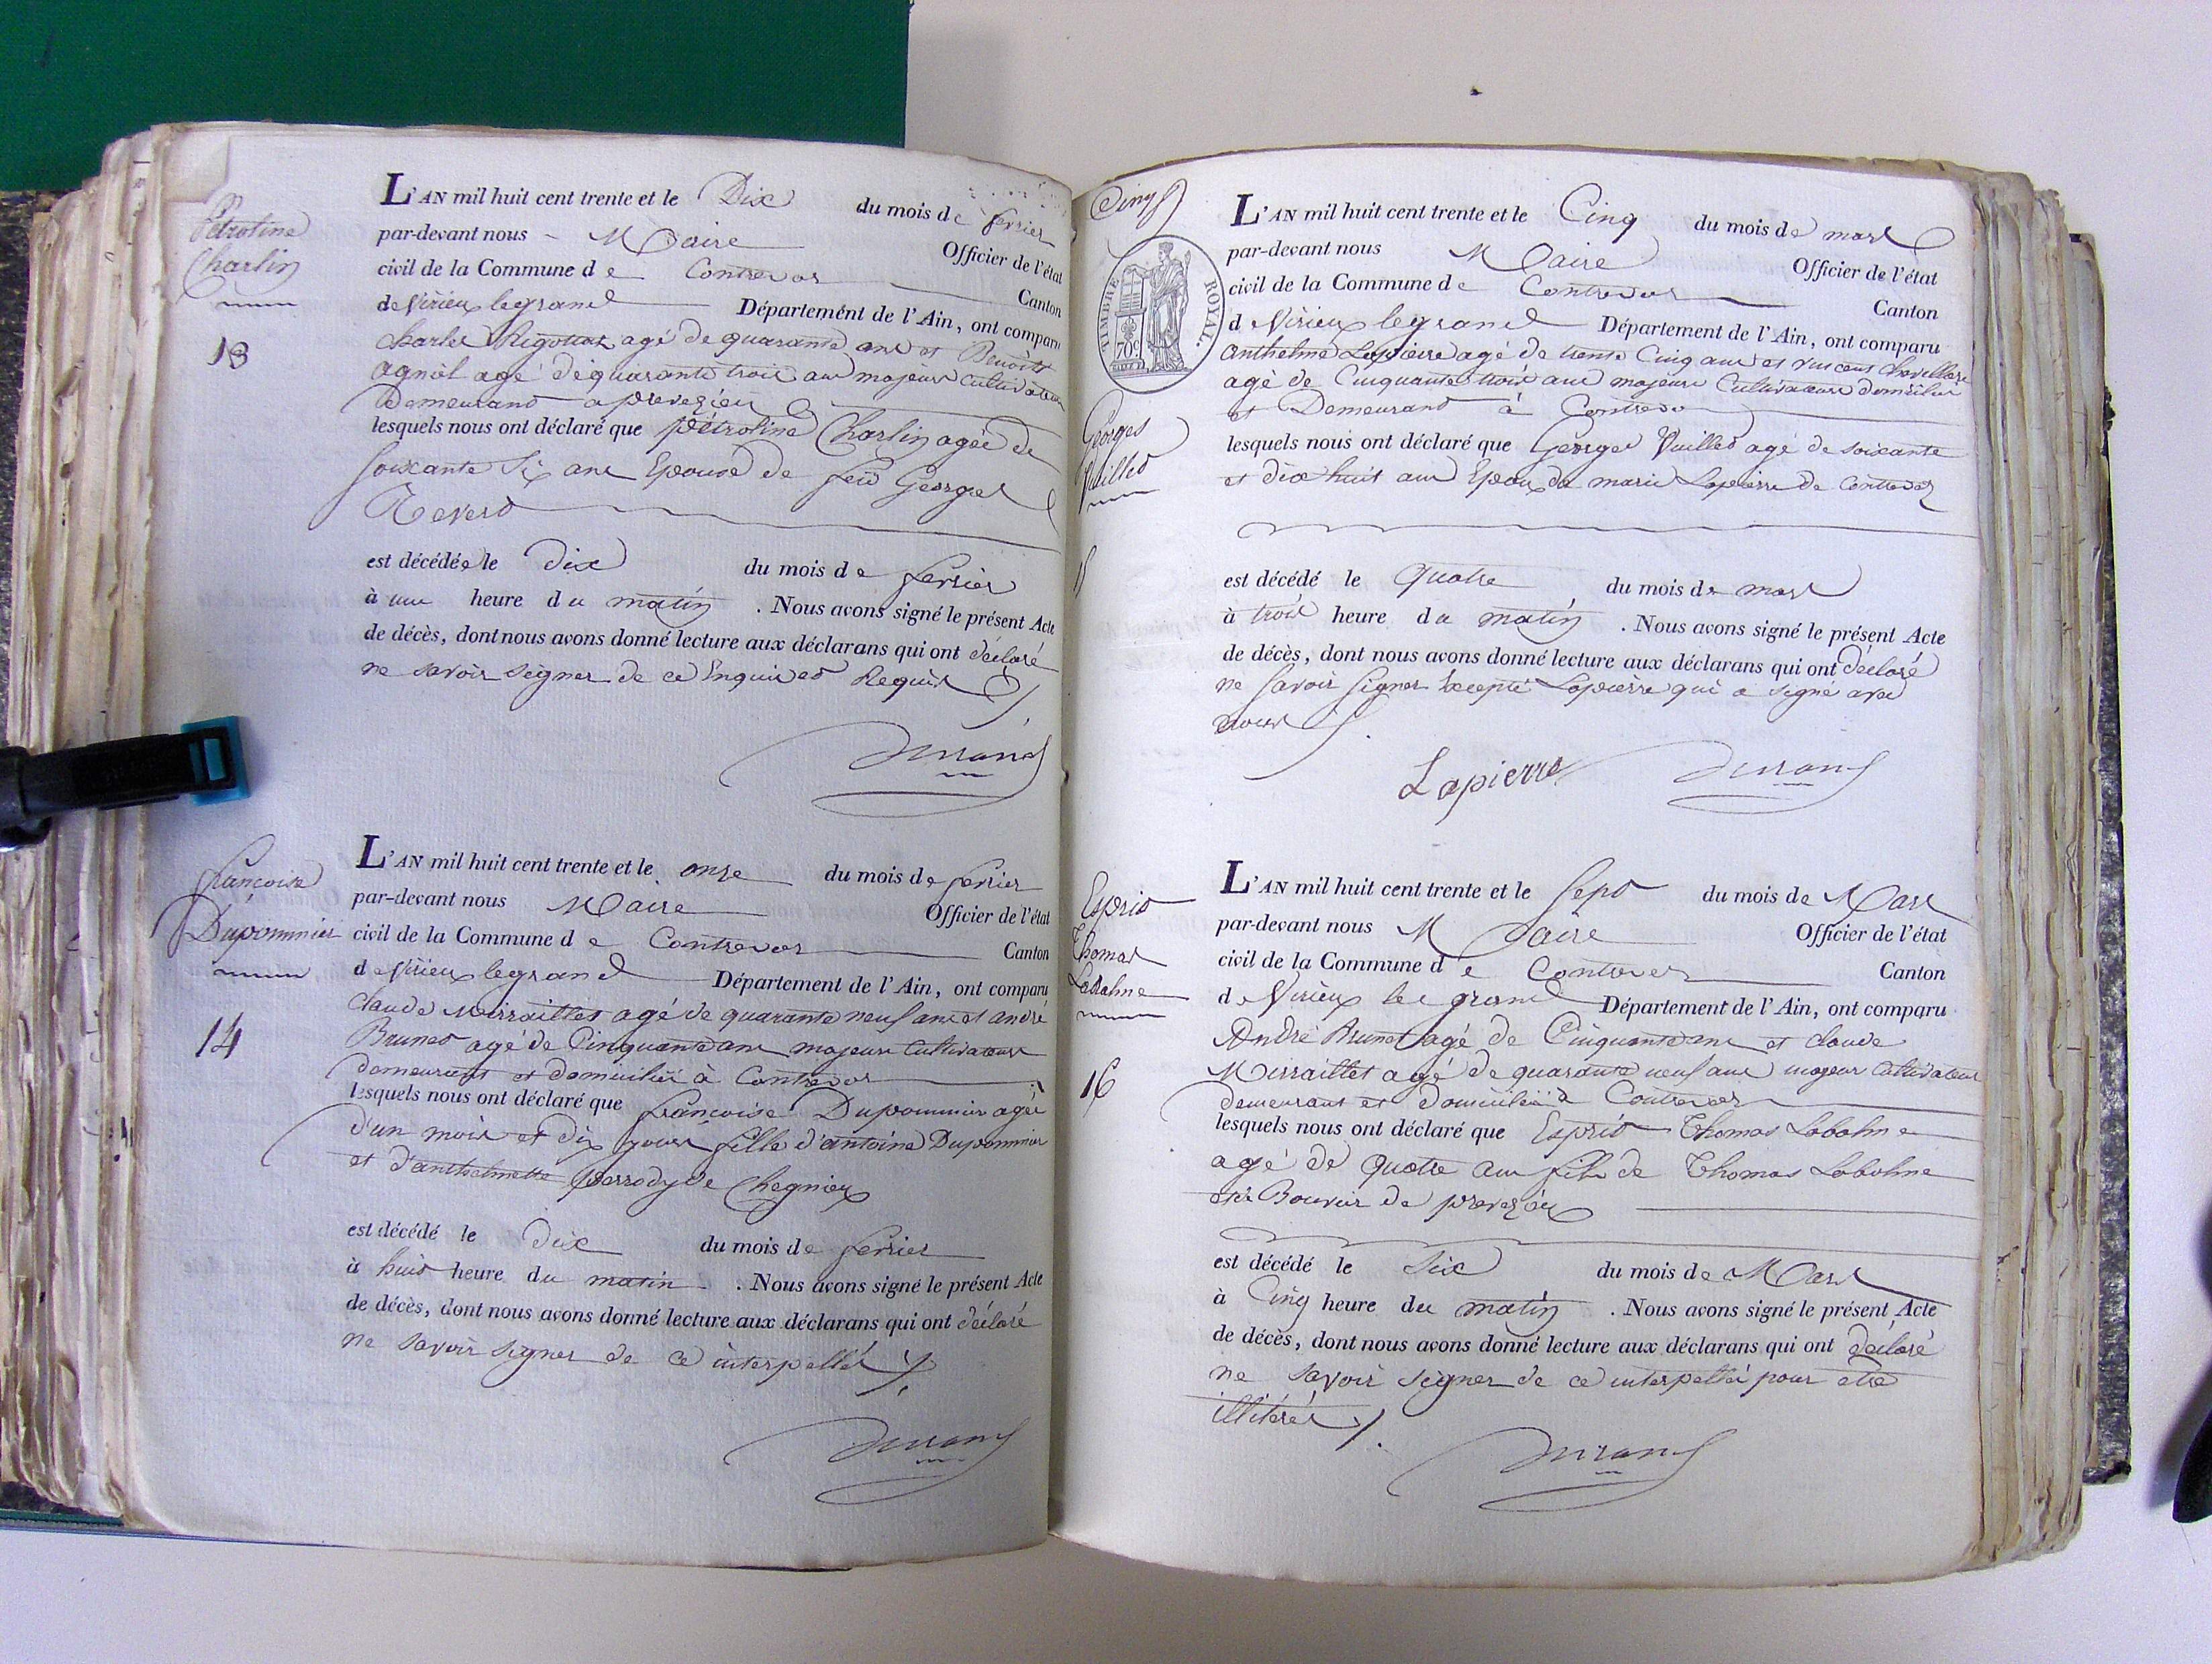 Pétroline
Charlin
13
L'AN mil huit cent trente et le Dix du mois de fevrier
par-devant nous - Maire Officier de l'état
civil de la Commune de Contrevoz Canton
de Virieu legrand Département de l'Ain, ont comparu
charles Rigottaz agé de quarante ans et Benoist
agniel agé de quarante trois ans majeurs Cultivateurs
Demeurant a preveyzieu
lesquels nous ont déclaré que pétroline Charlin agée de
soixante Six ans Epouse de feu George
Revero
est décédée le dix du mois de fevrier
à une heure du matin . Nous avons signé le présent Acte
de décès, dont nous avons donné lecture aux déclarans qui ont déclaré
ne savoir signer de ce Enquis et Requis
Durand
françoise
Dupommier
14
L'AN mil huit cent trente et le onze du mois de fevrier
par-devant nous Maire Officier de l'état
civil de la Commune de Contrevoz Canton
de Virieu legrand Département de l'Ain, ont comparu
claude Mirraillet agé de quarante neuf ans et andré
Brunet agé de Cinquante ans majeurs Cultivateurs
demeurant et domicilié à Contrevoz
lesquels nous ont déclaré que françoise Dupommier agée
d'un mois et dix jours fille d'antoine Dupommier
et d'anthelmette perrody de Chegnieu
est décédé le dix du mois de fevrier
à huit heure du matin . Nous avons signé le présent Acte
de décès, dont nous avons donné lecture aux déclarans qui ont déclaré
ne savoir signer de ce interpellés
Durand
Cinq
TIMBRE ROYAL.
70c.
Georges
Vuillet
L'AN mil huit cent trente et le Cinq du mois de mars
par-devant nous Maire Officier de l'état
civil de la Commune de Contrevoz Canton
d Virieu legrand Département de l'Ain, ont comparu
anthelme Lapierre agé de trente Cinq ans et vincent
agé de Cinquante trois ans majeurs Cultivateurs domicilié
et Demeurant à Contrevo
lesquels nous ont déclaré que George Vuillet agé de soixante
et dix huit ans Epoux de marie Lapierre de Contrevoz
est décédé le quatre du mois de mars
à trois heure du matin . Nous avons signé le présent Acte
de décès, dont nous avons donné lecture aux déclarans qui ont déclaré
ne savoir signer Excepté Lapierre qui a signé avec
nous
Lapierre Durand
Esprit
Thomas
Labalme
16
L'AN mil huit cent trente et le Sept du mois de Mars
par-devant nous Maire Officier de l'état
civil de la Commune de Contrevoz Canton
de Virieu le grand Département de l'Ain, ont comparu
André Brunet agé de Cinquante ans et claude
Mirraillet agé de quarante neuf ans majeurs Cultivateurs
demeurant et domicilié à Contrevoz
lesquels nous ont déclaré que Esprit Thomas Labalme
agé de quatre ans fils de Thomas Labalme
Bouvier de preveyzieu
est décédé le Six du mois de Mars
à Cinq heure du matin . Nous avons signé le présent Acte
de décès, dont nous avons donné lecture aux déclarans qui ont déclaré
ne savoir signer de ce interpellé pour etre
illiterés
Durand